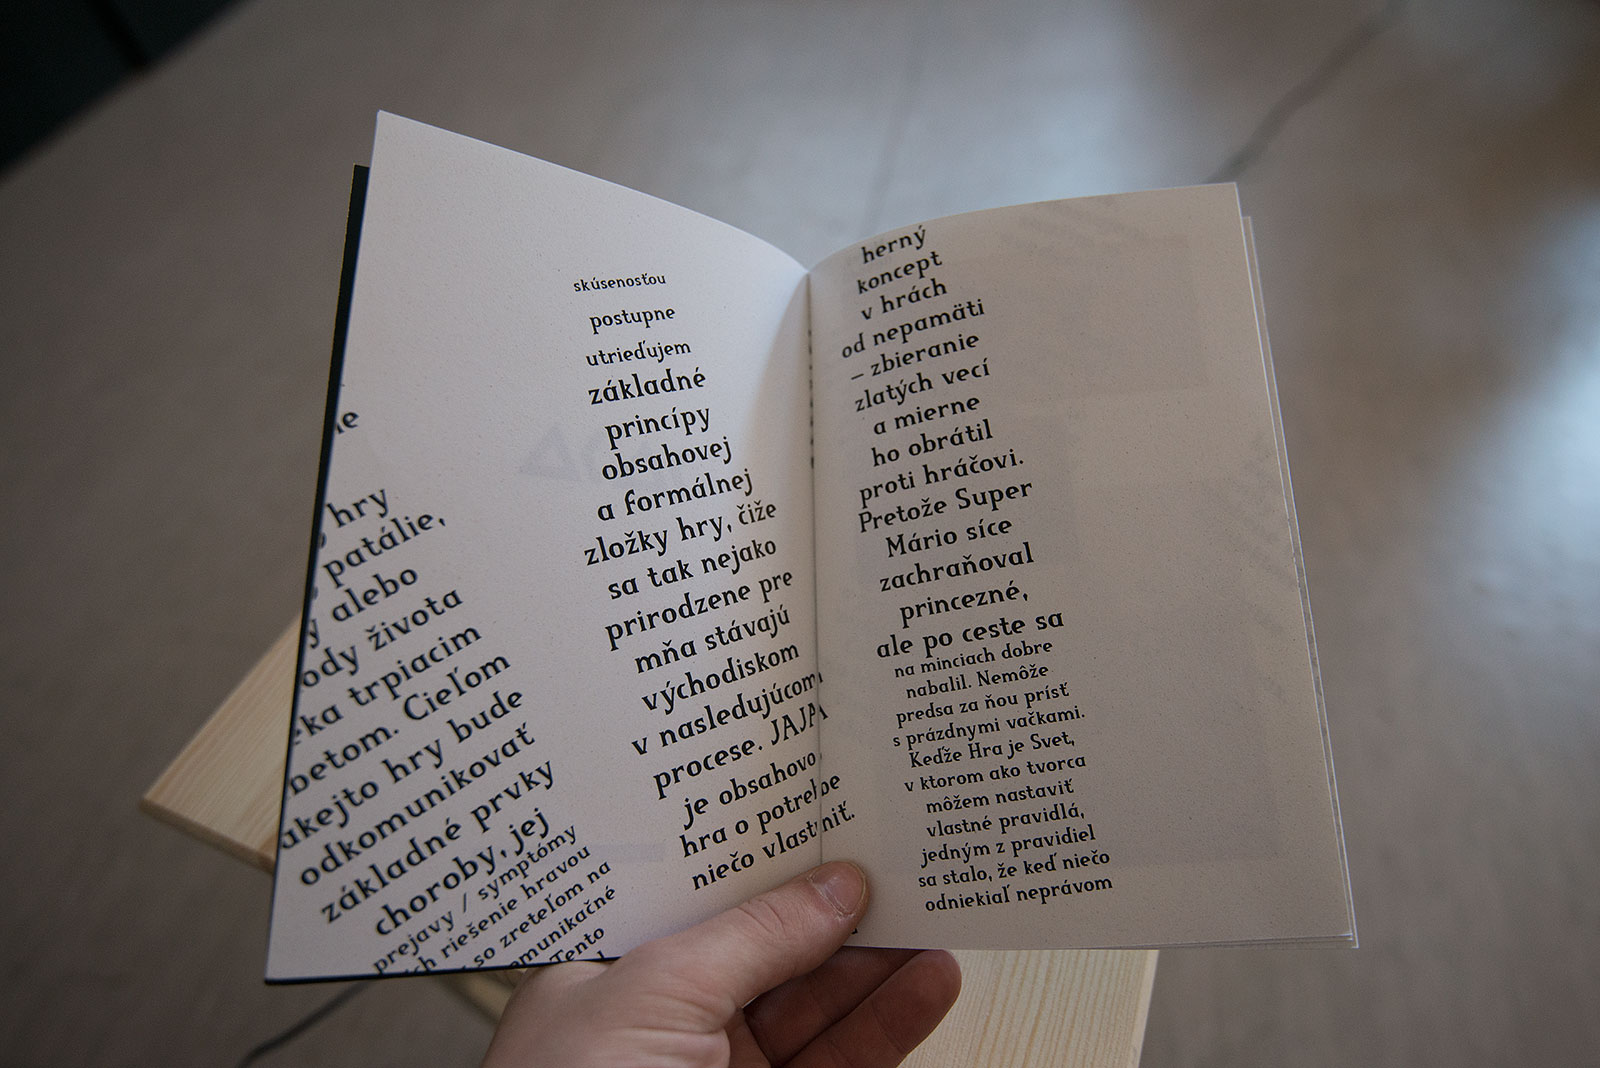 hry
patálie,
alebo
života
trpiacim
Cieľom
hry bude
odkomunikovať
základné prvky
choroby, jej
prejavy / symptómy
riešenie hravou
so zreteľom na
Tento
skúsenosťou
postupne
utrieďujem
základné
princípy
obsahovej
a formálnej
zložky hry, čiže
sa tak nejako
prirodzene pre
mňa stávajú
východiskom
v nasledujúcom
procese. JAJA
je obsahovo
hra o potrebe
niečo vlastniť.
herný
koncept
v hrách
od nepamäti
– zbieranie
zlatých vecí
a mierne
ho obrátil
proti hráčovi.
Pretože Super
Mário síce
zachraňoval
princezné,
ale po ceste sa
na minciach dobre
nabalil. Nemôže
predsa za ňou prísť
s prázdnymi vačkami.
Keďže Hra je Svet,
v ktorom ako tvorca
môžem nastaviť
vlastné pravidlá,
jedným z pravidiel
sa stalo, že keď niečo
odniekiaľ neprávom